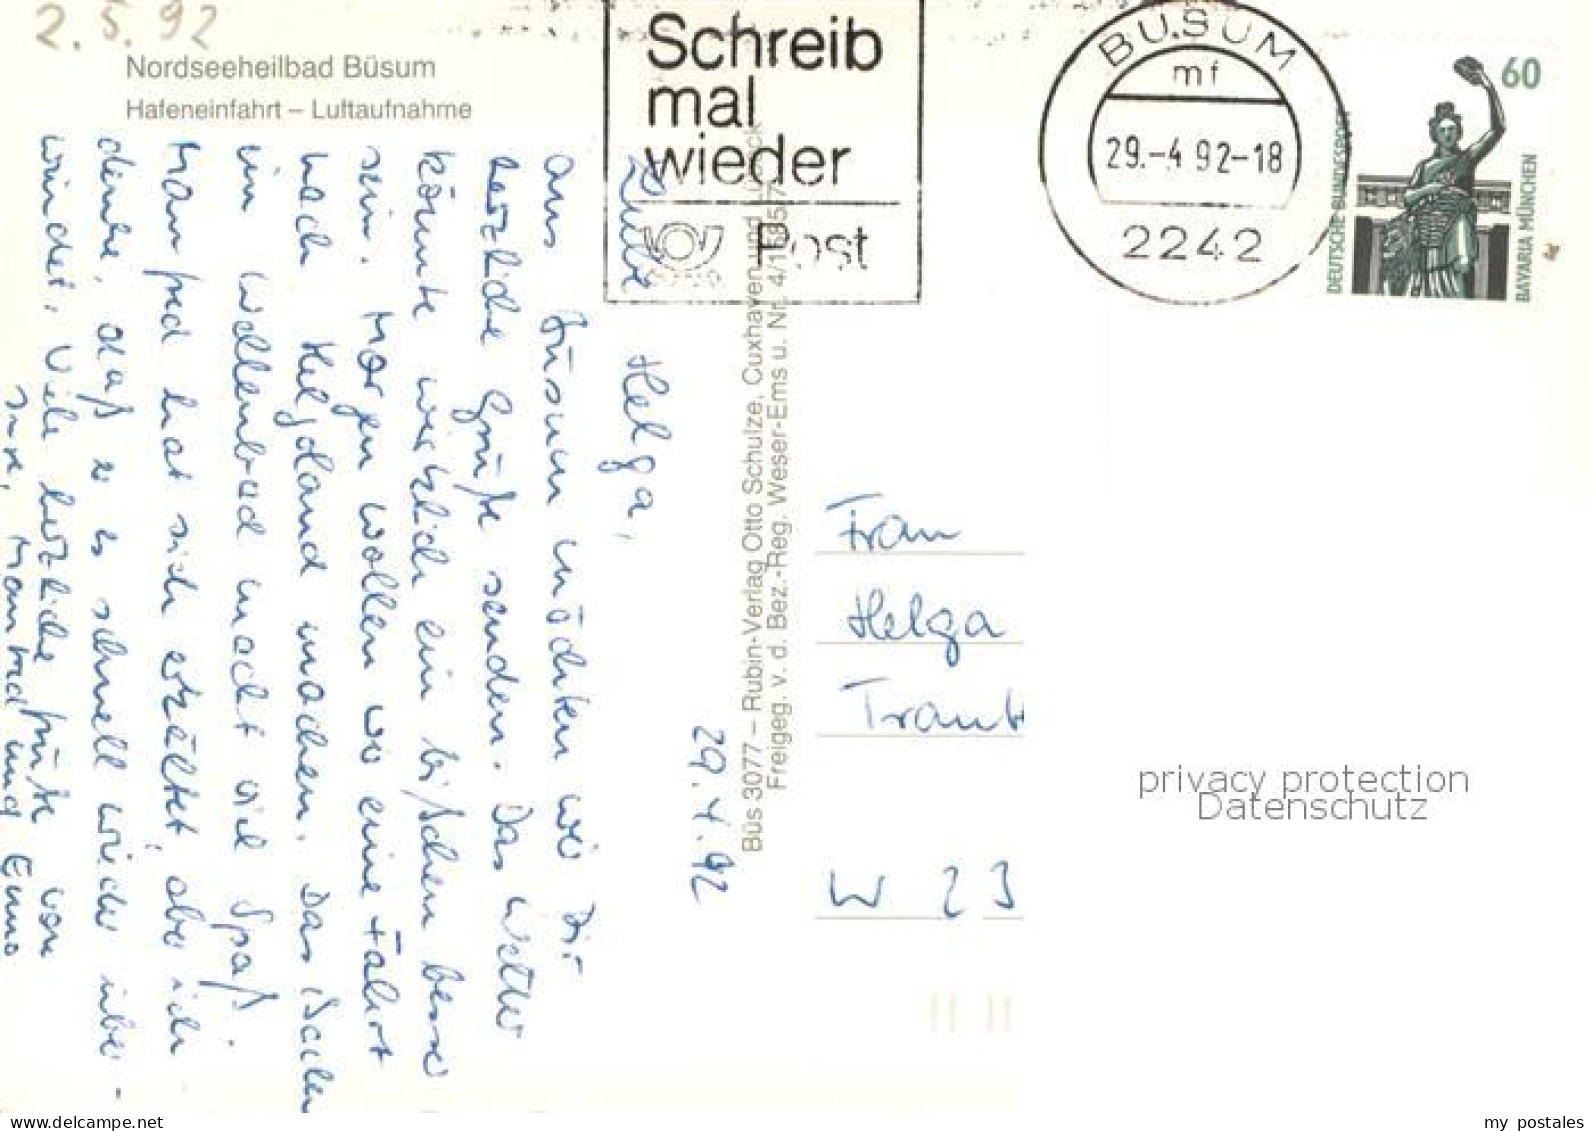 2.5.92
Nordseeheilbad Büsum
Hafeneinfahrt – Luftaufnahme
Schreib
mal
wieder
Post
BÜSUM
mf
29.-4.92-18
2242
60
DEUTSCHE BUNDESPOST
BAVARIA MÜNCHEN
29.4.92
Liebe Helga,
aus Büsum möchten wir Dir
herzliche Grüße senden. Das Wetter
könnte wirklich ein bißchen besser
sein. Morgen wollen wir eine Fahrt
nach Helgoland machen. Das Baden
im Wellenbad macht viel Spaß.
Manfred hat sich erkältet, aber ich
denke, daß er es schnell wieder über-
windet. Viele herzliche Grüße von
Manfred und Enno
Büs 3077 – Rubin-Verlag Otto Schulze, Cuxhaven und
Freigeg. v. d. Bez.-Reg. Weser-Ems u. Nr. 4/1685/7
Frau
Helga
Traut
W 23
privacy protection
Datenschutz
www.delcampe.net
my postales